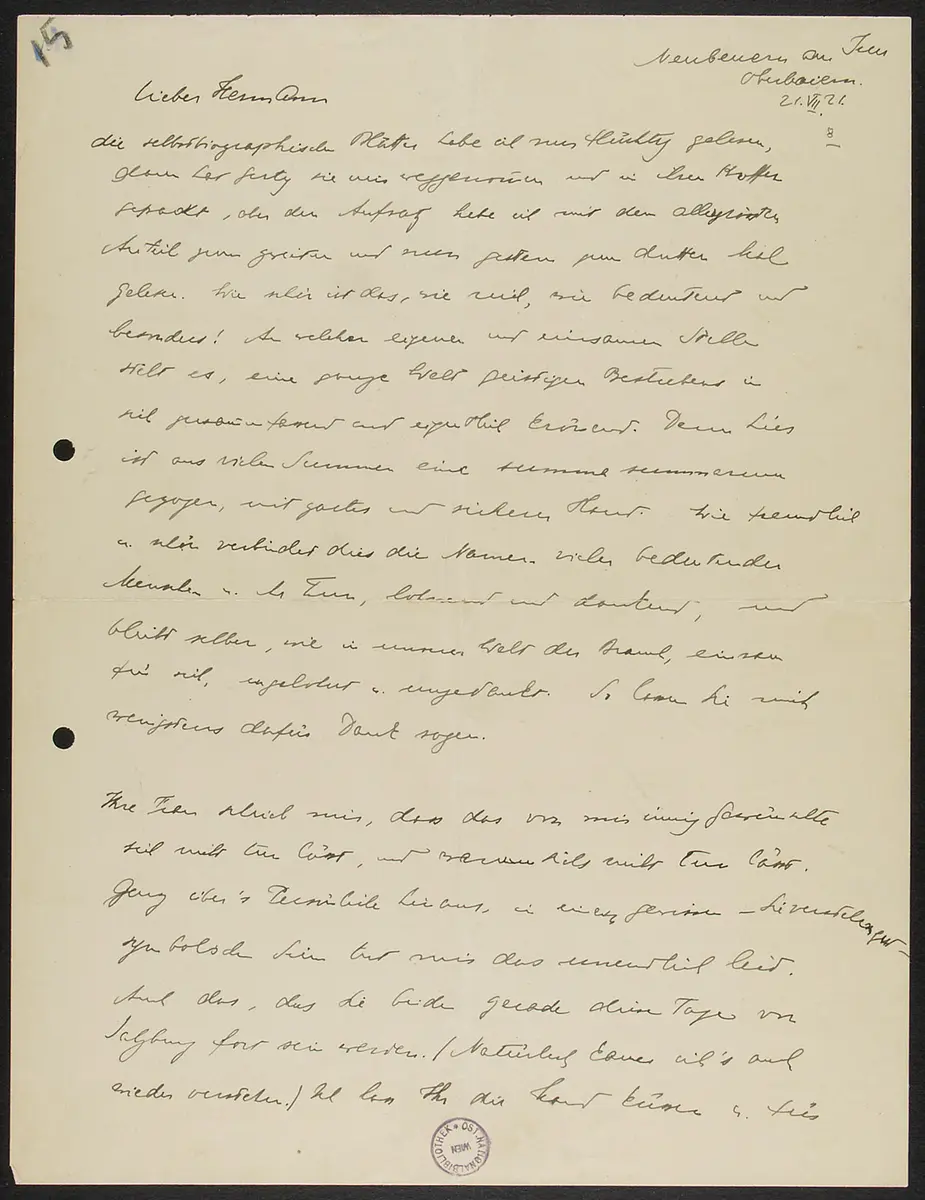 15
Neubeuern am Inn
Oberbaiern.
21.VII.21.
8
Lieber Hermann
die selbstbiographischen Blätter habe ich nur flüchtig gelesen,
dann hat Gerty sie mir weggenommen und in ihren Koffer
gepackt, aber den Aufsatz habe ich mit dem allergrössten
Anteil zum zweiten und nun gestern zum dritten Mal
gelesen. Wie schön ist das, wie reich, wie bedeutend und
besonders! An welcher eigenen und einsamen Stelle
steht es, eine ganze Welt geistigen Bestrebens in
sich zusammenfassend und eigentlich krönend. Denn hier
ist aus vielen Summen eine summa summarum
gezogen, mit zarter und sicherer Hand. Wie freundlich
u. schön verbindet dies die Namen vieler bedeutender
Menschen u. ihr Tun, lohnend und dankend, und
bleibt selber, wie in unserer Welt der Brauch, einsam
für sich, ungelohnt u. ungedankt. So lassen Sie mich
wenigstens dafür Dank sagen.
Ihre Frau schrieb mir, dass das von mir innig Gewünschte
sich nicht tun lässt, und warum sichs nicht tun lässt.
Ganz über's Persönliche hinaus, in einem gewissen – Sie verstehen gut –
symbolischen Sinn tut mir das unendlich leid.
Auch das, dass Sie beide gerade diese Tage von
Salzburg fort sein werden. (Natürlich kann ich's auch
wieder verstehen.) Ich lass Ihr die Hand küssen u. für's
OST. NATIONALBIBLIOTHEK
WIEN